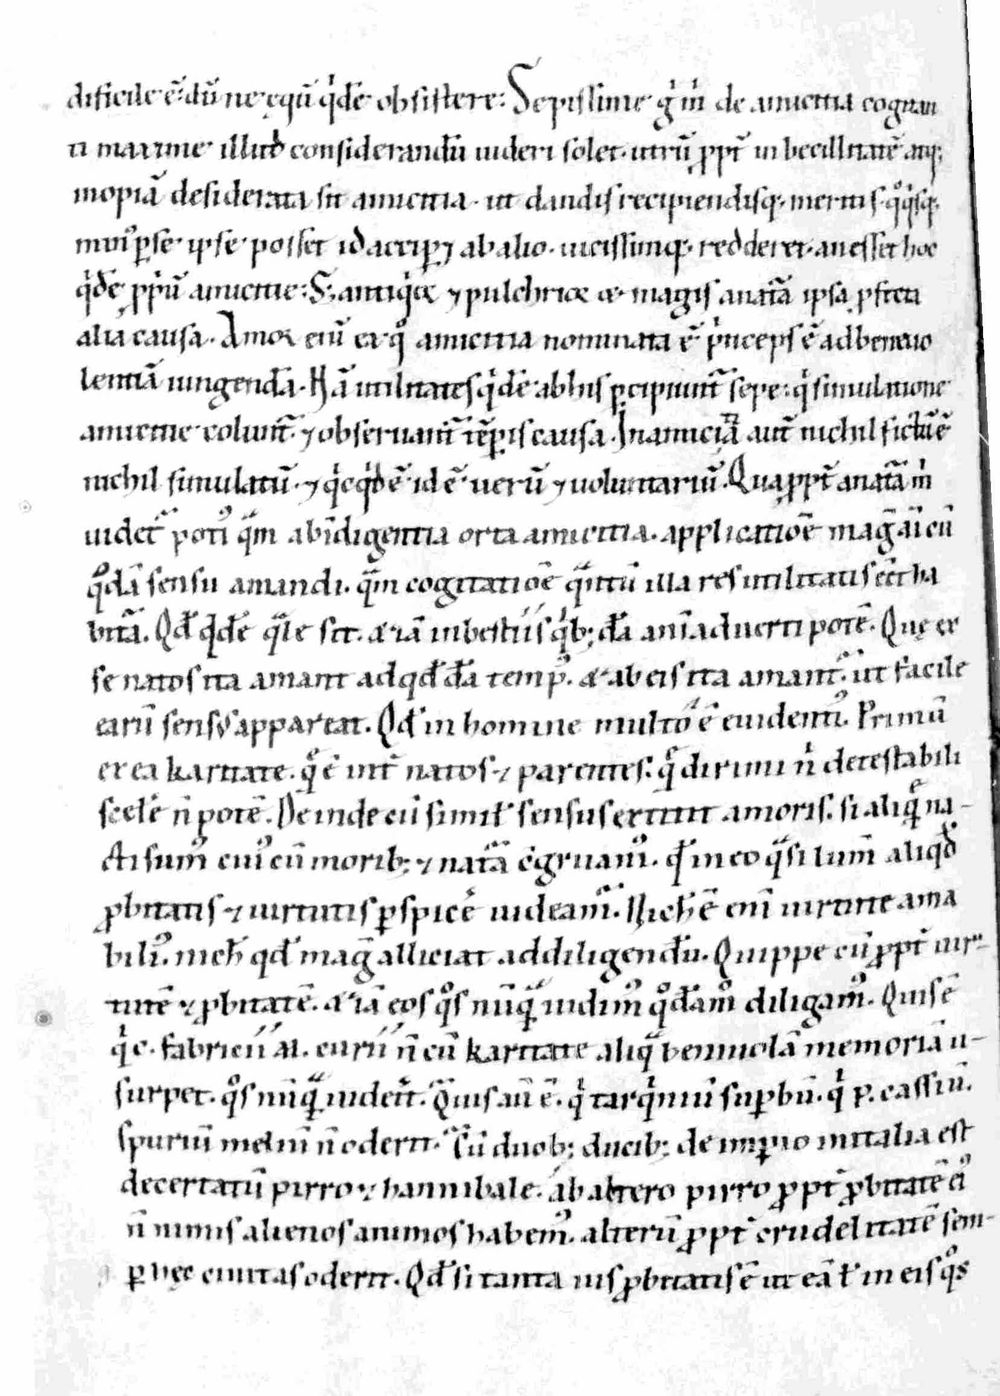 dificile ē. dū ne ęqū q̇dē obsistere: Sepissime g̍ m̍ de amicitia cogitan
ti maxime illud considerandū uideri solet. utrū ꝓpt̄ inbecillitatē atq;
inopiā desiderata sit amicitia. ut dandis recipiendisq; meritis. qͦ q̍sq;
min᾽ ꝑ se ipse posset id acciꝑet ab alio. uicissimq; redderet. an esset hoc
q̍dē ꝓp̍ū amicitie: S; antiq̍or ⁊ pulchrior & magis a natā ipsa ꝓfecta
alia causa. Amor eni ex qͦ amicitia nominata ē p̍nceps ē ad beneuo
lentiā iungendā. Nā utilitates q̍dē ab his ꝑcipiunt̄ sepe: q̍ simulatione
amicitie colunt̄. ⁊ obseruant̄ tēꝑis causa. In amicicia aut̄ nichil fictū ē
nichil simulatū. ⁊ q̍cq̍d ē id ē uerū ⁊ uoluntariū. Quaꝓpt̄ a natā m̍
uidet̄ poti᾽ q̄m ab indigentia orta amicitia. applicatiōe maḡ ai cū
qͦdā sensu amandi. q̄m cogitatiōe q̄ntū illa res utilitatis eēt ha
bitā. Qd̄ q̍dē q̄le sit. & iā in bestiis q̍b; dā animaduerti potē. Quę ex
se natos ita amant ad qd̄dā temp᾽. & ab eis ita amant̄. ut facile
earū sensus appareat. Qd̄ in homine multo ē euidenti᾽. Primū
ex ea karitate. qͦ ē int̄ natos ⁊ parentes. qͦ dirimi n̍ detestabili
scelē n̄ potē. Deinde cū simił sensus extitit amoris. si aliqͤ na-
cti sum᾽ cui᾽ cū morib; ⁊ natā cgruam᾽. qd̄ in eo q̄si lum̄ aliqd̄
ꝓbitatis ⁊ uirtutis ꝑspicē uideam᾽. Nich̄ ē eni uirtute ama
bili᾽. nich̄ qd̄ maḡ alliciat ad diligendū. Quippe cū ꝓpt̄ uir-
tutē ⁊ ꝓbitatē. & iā eos qͦs nūq̄ uidim᾽ qͦdam᾽ diligam᾽. Quis ē
q̍ c. fabricii aɫ. curii n̄ cū karitate aliq̄ beniuolā memoriā u-
surpet. qͦs nūq̄ uiderit. Quis aū ē. q̍ tarq̍niū suꝑbū. q̍ p. cassiū.
spuriū meliū n̄ oderit. Cū duob; ducib; de imꝑio in italia est
decertatū pirro ⁊ hannibale. ab altero pirro ꝓpt̄ ꝓbitatē ei᾽
n̄ nimis alienos animos habem᾽. alterū ꝓpt̄ crudelitatē sem-
ꝑ hęc ciuitas oderit. Qd̄ si tanta uis ꝓbitatis ē ut eā ł in eis qͦs